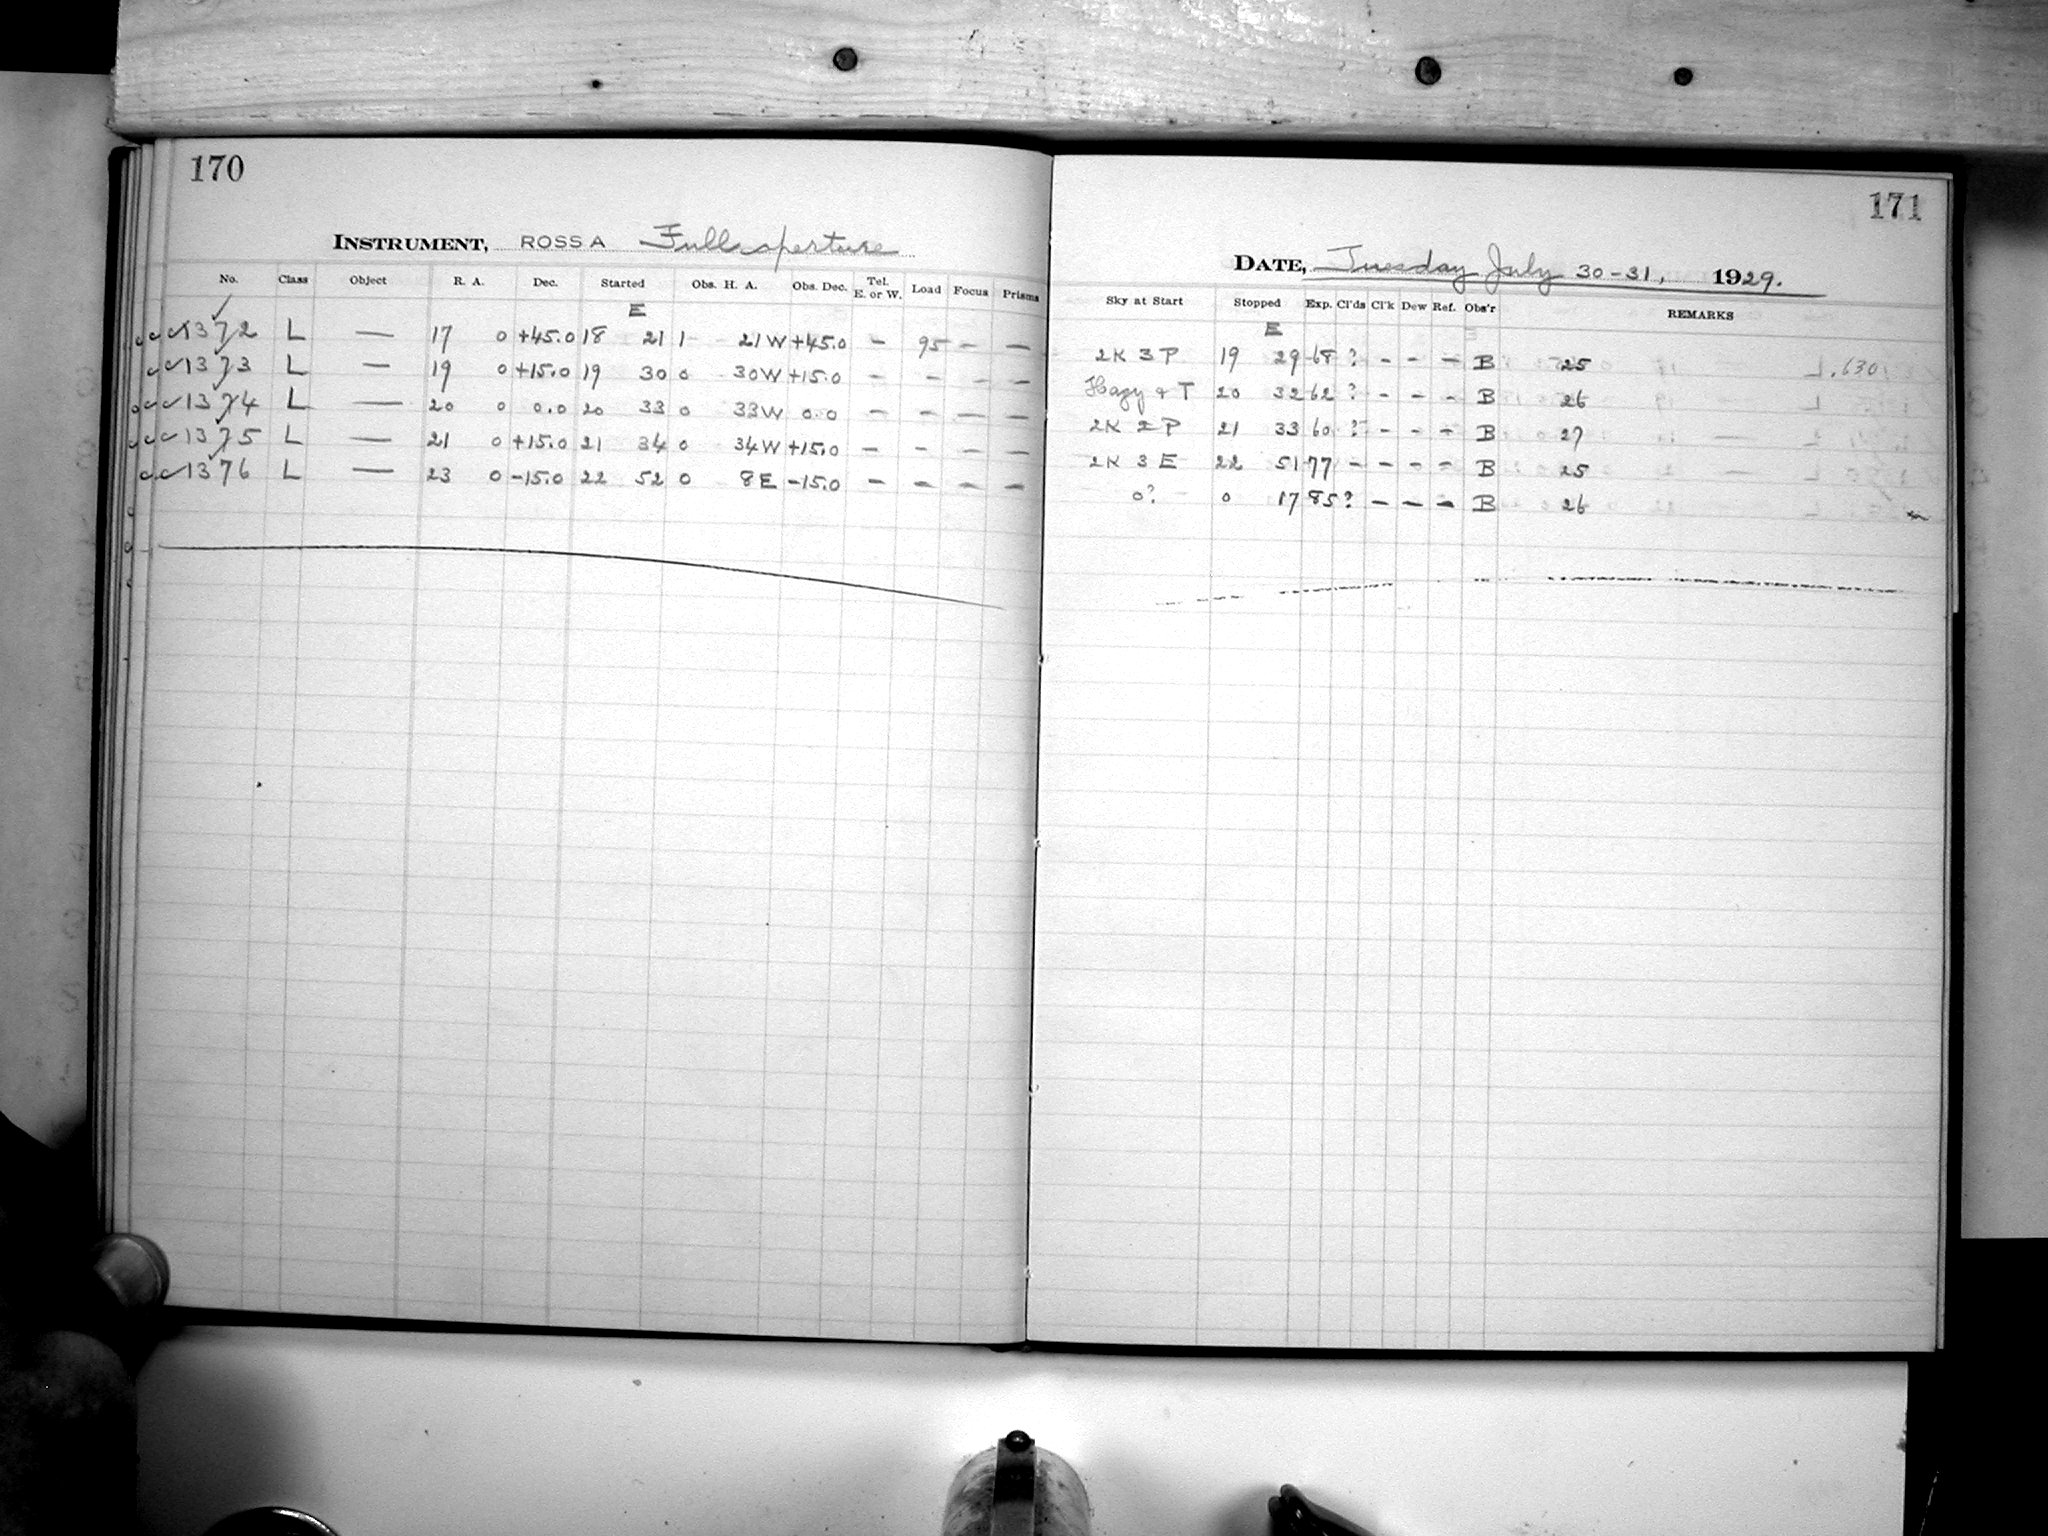 170
INSTRUMENT, ROSS A Full aperture
No. Class Object R. A. Dec. Started Obs. H. A. Obs. Dec. Tel. E. or W. Load Focus Prisms
E
1372 L — 17 0 +45.0 18 21 1 21W +45.0 – 95 – –
1373 L — 19 0 +15.0 19 30 0 30W +15.0 – – – –
1374 L — 20 0 0.0 20 33 0 33W 0.0 – – – –
1375 L — 21 0 +15.0 21 34 0 34W +15.0 – – – –
1376 L — 23 0 -15.0 22 52 0 8E -15.0 – – – –
171
DATE, Tuesday July 30-31, 1929.
Sky at Start Stopped Exp. Cl'ds Cl'k Dew Ref. Obs'r REMARKS
E
2K 3 P 19 29 68 ? – – – B 25
Hazy + T 20 32 62 ? – – – B 26
2K 2 P 21 33 60 ? – – – B 27
2K 3 E 22 51 77 – – – – B 25
0? 0 17 85 ? – – – B 26